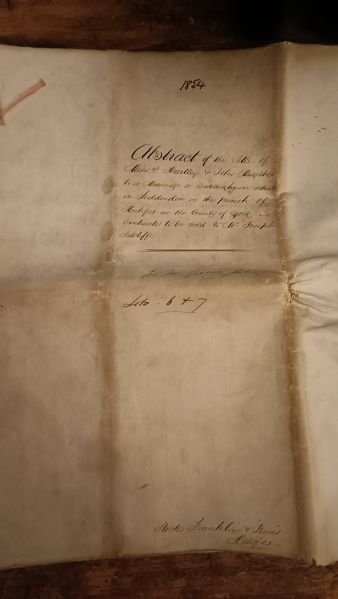 1854
Abstract of the title of
Hartley & John
to a Messuage or Dwellinghouse situate
in Luddenden in the parish of
Halifax in the County of York
Contracted to be sold to Mr Joseph
Sutcliffe
Lots 6 & 7
Franklin &
Halifax